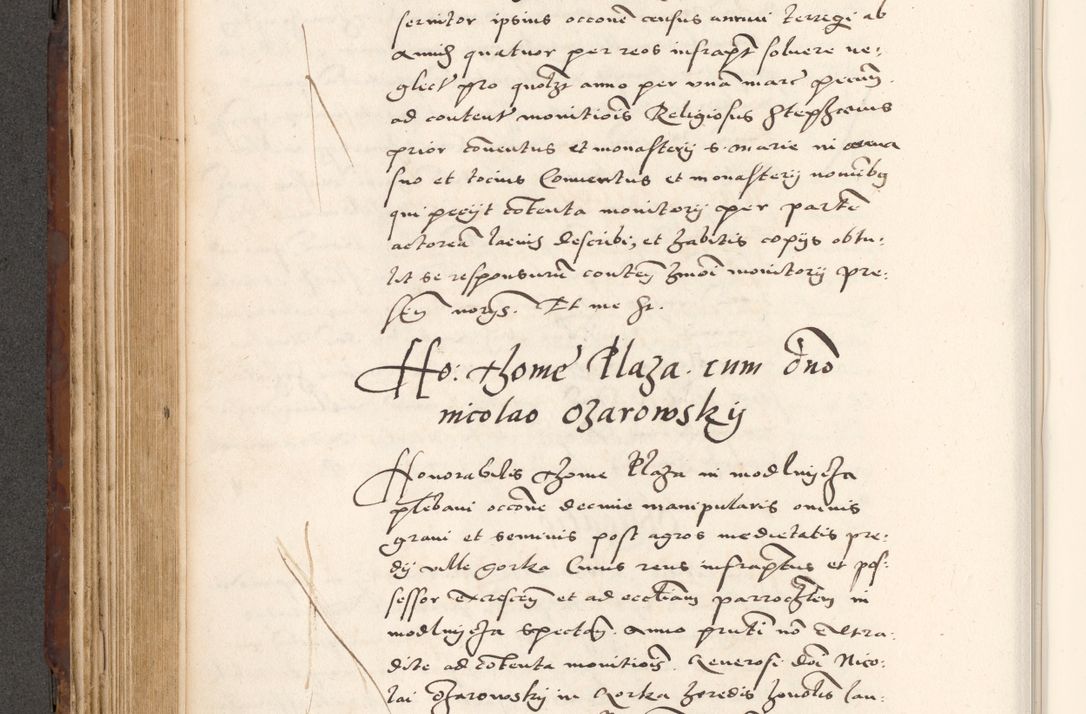 servitor ipsius occoñe census annui terregi ab
annis quatuor per reos infrapt solvere ne:
glect pro quolzt anno per vnã marc pecuñ
ad content monitiois Religiosus Stephanus
prior conventus et monasterij s. marie in arena
suo et tocius Conventus et monasterij nominibg
qui petijt cotenta monitorij per partẽ
actoreã laevis describi, et habitis copijs obtu:
lit se responsurũ conteñ hmoi monitorij pre:
señ norijs. Et me sr.
Ho: thome Plaza. cum dño
nicolao Ozarowskij
Honorabilis thome Plaza in modlnijcza
plebani occoñe decime manipularis omnis
grani et seminis post agros medietatis pre:
dij ville gorka Cuius reus infraptus est pos:
sessor excresceñ et ad eccliam parrochlem in
modlnijcza spectañ. anno pñti nõ extra:
dite ad cotenta monitiois. Generosi dñi Nico:
lai Ozarowskij in Gorka heredis honolis lau: